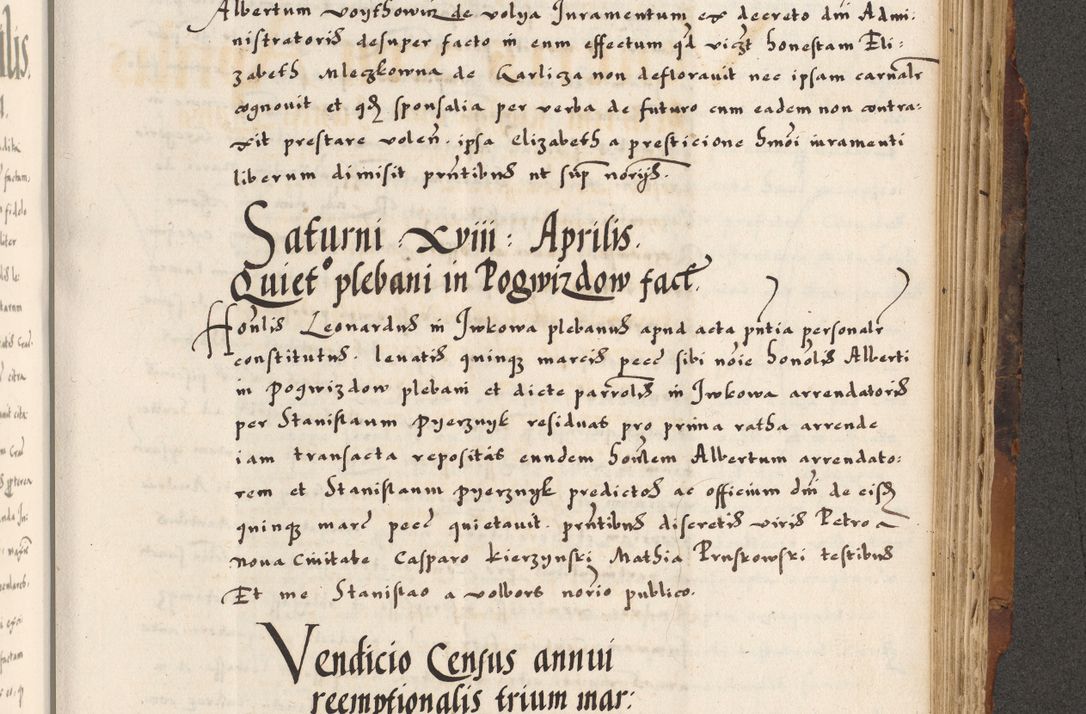 Albertum voythowicz de volya Iuramentum ex decreto dni Admi-
nistratoris desuper facto in eum effectum qd viczt honestam Eli:
zabeth Mleczkowna de Karlicza non deflorauit nec ipsam carnalr
cognouit et qd sponsalia per verba de futuro cum eadem non contra:
xit prestare volen. ipsa Elizabeth a presticione hmoi iuramenti
liberum dimisit pntibus ut sup norijs.
Saturni : Xviii : Aprilis.
Quieto plebani in Pogwizdow fact.
Honlis Leonardus in Iwkowa plebanus apud acta pntia personalr
constitutus. leuatis quinq marcis pecc sibi noie honolis Alberti
in Pogwizdow plebani et dicte parrolis in Iwkowa arrendatoris
per Stanislaum Pyerznyk residuas pro prima ratha arrende
iam transacta repositas eundem honlem Albertum arrendato:
rem et Stanislaum pyerznyk predictos ac officium dni de eisd
quinq marc pecc quietauit. pntibus discretis viris Petro a
noua Ciuitate Casparo Kierzynski Mathia Pruskowski testibus
Et me Stanislao a volbors norio publico.
Vendicio Census annui
reemptionalis trium mar: